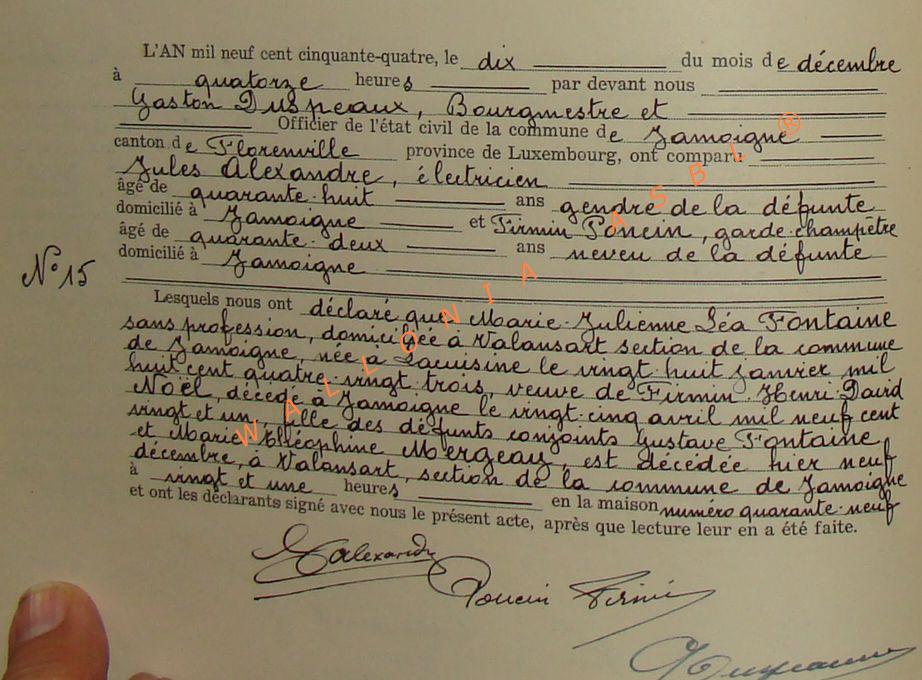 L'AN mil neuf cent cinquante-quatre, le dix du mois de décembre
à quatorze heures par devant nous
Gaston Duspeaux, Bourgmestre et
Officier de l'état civil de la commune de Jamoigne
canton de Florenville province de Luxembourg, ont comparu
Jules Alexandre, électricien
âgé de quarante-huit ans gendre de la défunte
domicilié à Jamoigne et Firmin Poncin, garde-champêtre
âgé de quarante-deux ans neveu de la défunte
domicilié à Jamoigne
N° 15
Lesquels nous ont déclaré que Marie-Julienne Léa Fontaine
sans profession, domiciliée à Valansart section de la commune
de Jamoigne, née à Lacuisine le vingt-huit janvier mil
huit cent quatre-vingt-trois, veuve de Firmin-Henri-David
Noël, décédé à Jamoigne le vingt-cinq avril mil neuf cent
vingt et un, fille des défunts conjoints Gustave Fontaine
et Marie Cléophine Mergeay, est décédée hier neuf
décembre, à Valansart, section de la commune de Jamoigne
à vingt et une heures en la maison numéro quarante-neuf
et ont les déclarants signé avec nous le présent acte, après que lecture leur en a été faite.
Alexandre
Poncin Firmin
WALLONIA ASBL ®